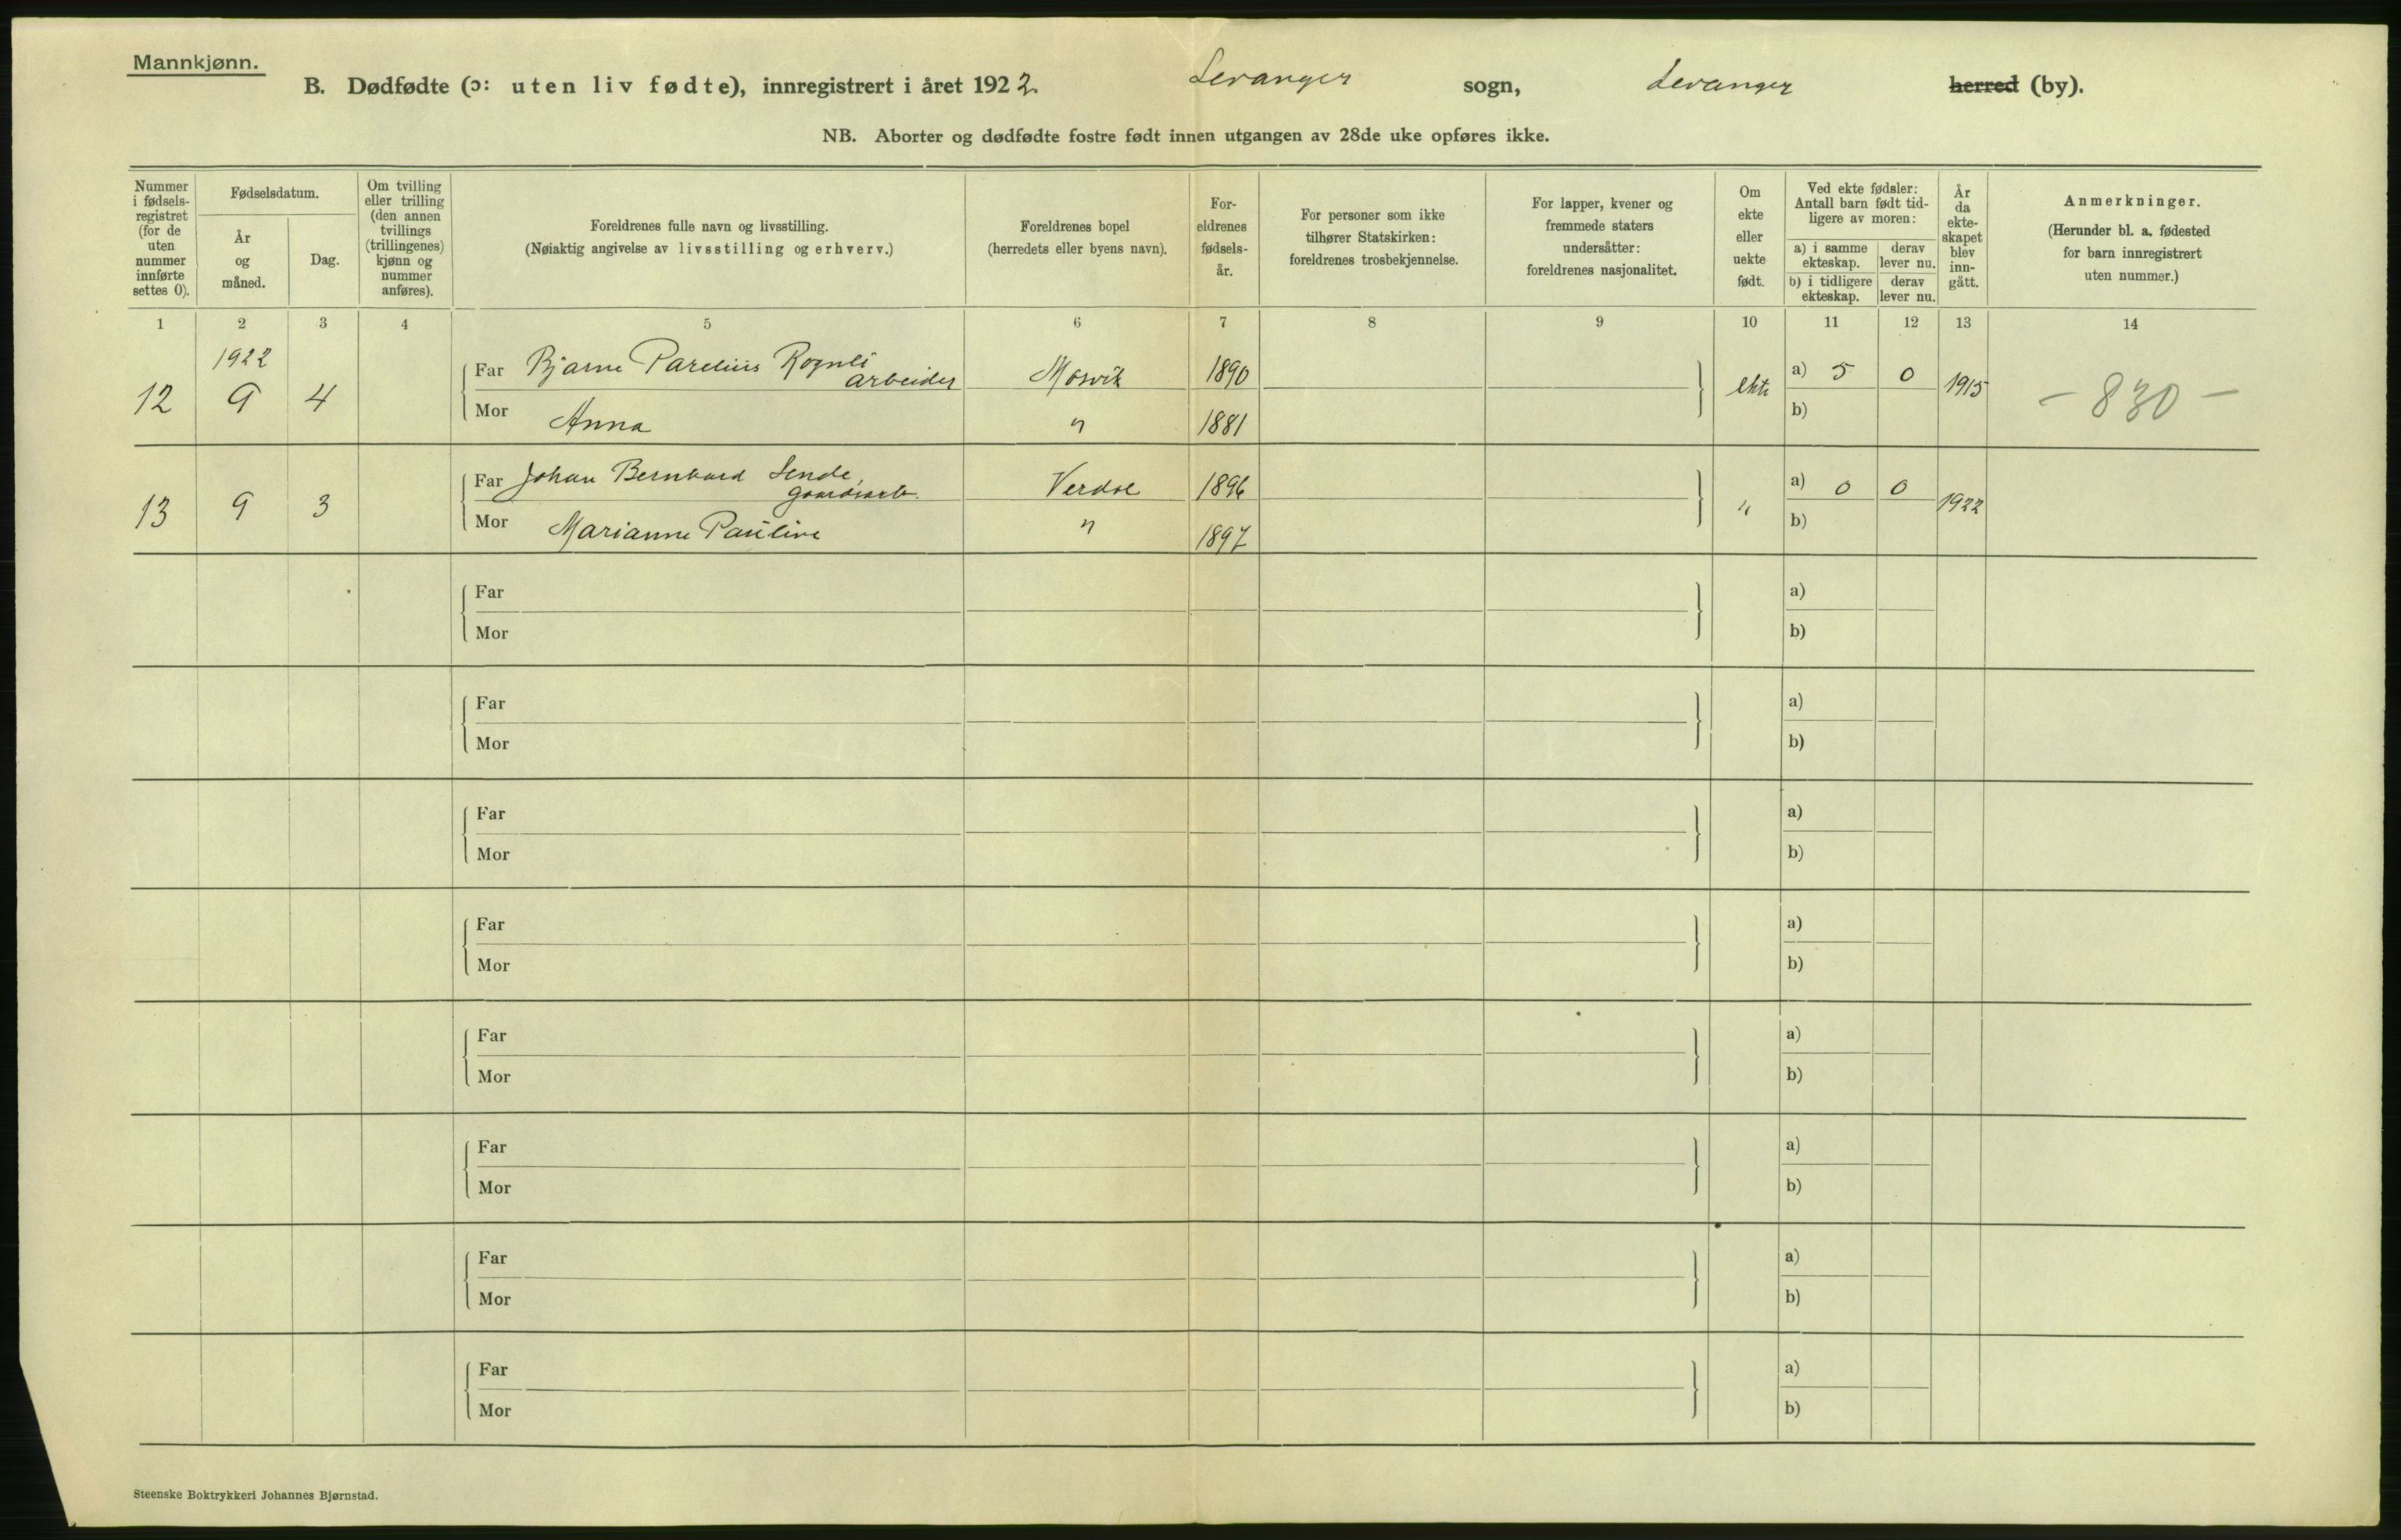 Mannkjønn.
B. Dødfødte (ɔ: uten liv fødte), innregistrert i året 1922. Levanger sogn, Levanger herred (by).
NB. Aborter og dødfødte fostre født innen utgangen av 28de uke opføres ikke.
Nummer i fødsels-registret (for de uten nummer innførte settes 0).
Fødselsdatum.
År og måned.
Dag.
Om tvilling eller trilling (den annen tvillings (trillingenes) kjønn og nummer anføres).
Foreldrenes fulle navn og livsstilling.
(Nøiaktig angivelse av livsstilling og erhverv.)
Foreldrenes bopel
(herredets eller byens navn).
For-eldrenes fødsels-år.
For personer som ikke tilhører Statskirken: foreldrenes trosbekjennelse.
For lapper, kvener og fremmede staters undersåtter: foreldrenes nasjonalitet.
Om ekte eller uekte født.
Ved ekte fødsler: Antall barn født tid-ligere av moren:
a) i samme ekteskap. derav lever nu.
b) i tidligere ekteskap. derav lever nu.
År da ekte-skapet blev inn-gått.
Anmerkninger.
(Herunder bl. a. fødested for barn innregistrert uten nummer.)
1 2 3 4 5 6 7 8 9 10 11 12 13 14
1922
12 9 4 Far Bjarne Parelius Rognli arbeider Mosvik 1890 ekte a) 5 0 1915 - 830 -
Mor Anna " 1881 b)
13 9 3 Far Johan Bernhard Sende, gaardsarb. Verdal 1896 " a) 0 0 1922
Mor Marianne Pauline " 1897 b)
Far a)
Mor b)
Far a)
Mor b)
Far a)
Mor b)
Far a)
Mor b)
Far a)
Mor b)
Far a)
Mor b)
Far a)
Mor b)
Far a)
Mor b)
Steenske Boktrykkeri Johannes Bjørnstad.